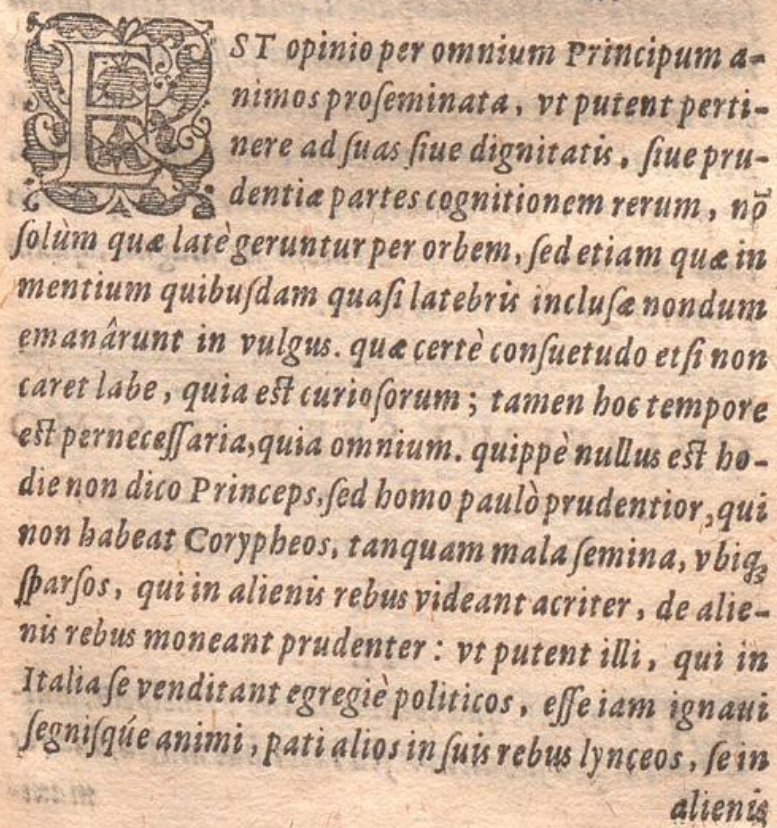 EST opinio per omnium Principum a-
nimos proſeminata, vt putent perti-
nere ad ſuas ſiue dignitatis, ſiue pru-
dentiæ partes cognitionem rerum, nō
ſolùm quæ latè geruntur per orbem, ſed etiam quæ in
mentium quibuſdam quaſi latebris incluſæ nondum
emanârunt in vulgus. quæ certè conſuetudo etſi non
caret labe, quia eſt curioſorum; tamen hoc tempore
eſt perneceſſaria, quia omnium. quippè nullus eſt ho-
die non dico Princeps, ſed homo paulò prudentior, qui
non habeat Corypheos, tanquam mala ſemina, vbiq;
ſparſos, qui in alienis rebus videant acriter, de alie-
nis rebus moneant prudenter: vt putent illi, qui in
Italia ſe venditant egregiè politicos, eſſe iam ignaui
ſegniſqúe animi, pati alios in ſuis rebus lynceos, ſe in
alienis